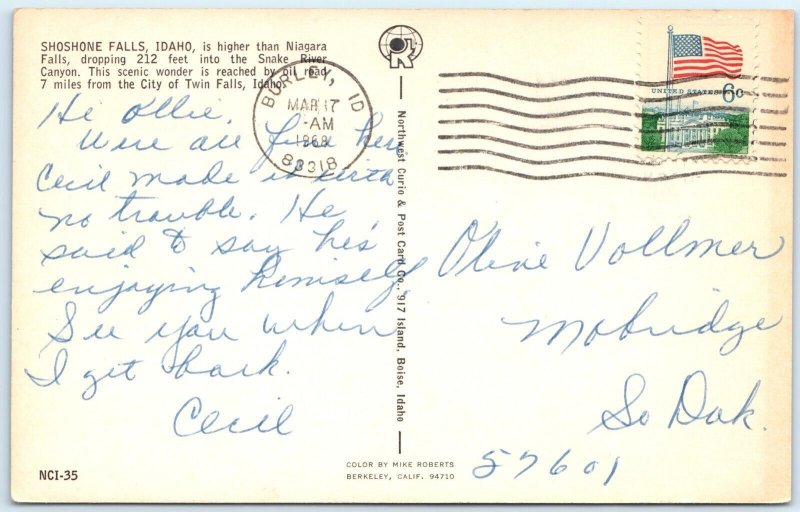 SHOSHONE FALLS, IDAHO, is higher than Niagara
Falls, dropping 212 feet into the Snake River
Canyon. This scenic wonder is reached by oil road
7 miles from the City of Twin Falls, Idaho.
Hi Ollie.
Were all fine here
Cecil made it with
no trouble. He
said to say he's
enjoying himself.
See you when
I get back.
Cecil
NCI-35
BURLEY, ID
MAR 17
AM
1968
83318
UNITED STATES 6c
Northwest Curio & Post Card Co., 917 Island, Boise, Idaho
Olive Vollmer
Mobridge
So Dak.
57601
COLOR BY MIKE ROBERTS
BERKELEY, CALIF. 94710